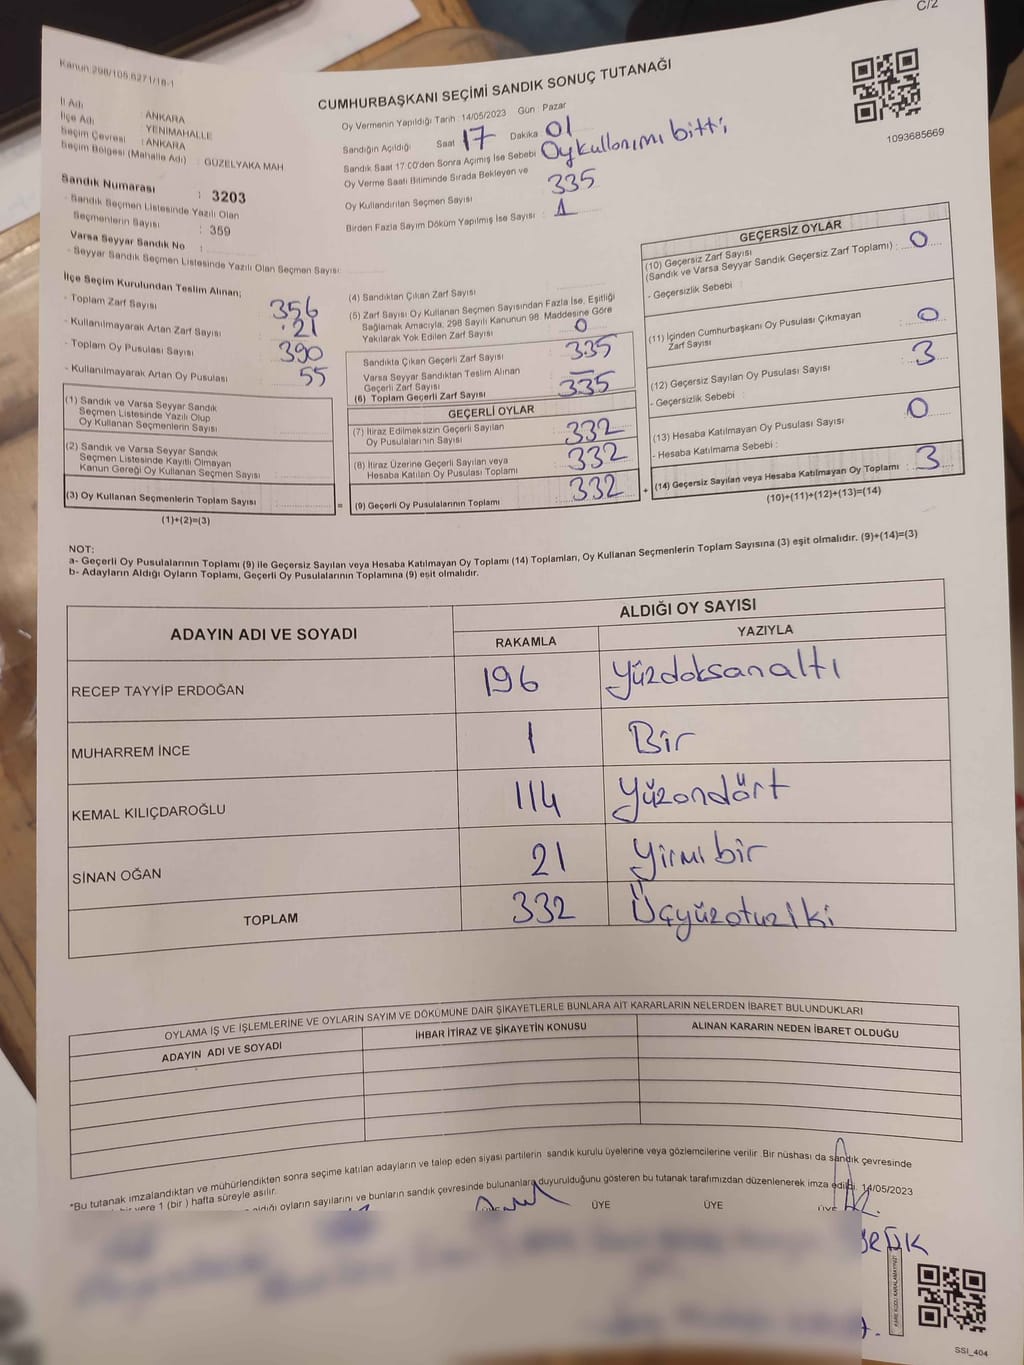 C/2
Kanun 298/105.6271/18-1
CUMHURBAŞKANI SEÇİMİ SANDIK SONUÇ TUTANAĞI
1093685669
İl Adı : ANKARA
İlçe Adı : YENİMAHALLE
Seçim Çevresi : ANKARA
Seçim Bölgesi (Mahalle Adı) : GÜZELYAKA MAH
Oy Vermenin Yapıldığı Tarih : 14/05/2023 Gün : Pazar
Sandığın Açıldığı Saat 17 Dakika 01
Sandık Saat 17:00'den Sonra Açımış İse Sebebi Oy kullanımı bitti
Oy Verme Saati Bitiminde Sırada Bekleyen ve
Oy Kullandırılan Seçmen Sayısı 335
Birden Fazla Sayım Döküm Yapılmış İse Sayısı : 1
Sandık Numarası : 3203
- Sandık Seçmen Listesinde Yazılı Olan
Seçmenlerin Sayısı : 359
Varsa Seyyar Sandık No :
- Seyyar Sandık Seçmen Listesinde Yazılı Olan Seçmen Sayısı:
İlçe Seçim Kurulundan Teslim Alınan;
- Toplam Zarf Sayısı 356
- Kullanılmayarak Artan Zarf Sayısı 21
- Toplam Oy Pusulası Sayısı 390
- Kullanılmayarak Artan Oy Pusulası 55
(1) Sandık ve Varsa Seyyar Sandık
Seçmen Listesinde Yazılı Olup
Oy Kullanan Seçmenlerin Sayısı
(2) Sandık ve Varsa Seyyar Sandık
Seçmen Listesinde Kayıtlı Olmayan
Kanun Gereği Oy Kullanan Seçmen Sayısı
(3) Oy Kullanan Seçmenlerin Toplam Sayısı
(1)+(2)=(3)
(4) Sandıktan Çıkan Zarf Sayısı
(5) Zarf Sayısı Oy Kullanan Seçmen Sayısından Fazla İse, Eşitliği
Sağlamak Amacıyla, 298 Sayılı Kanunun 98. Maddesine Göre
Yakılarak Yok Edilen Zarf Sayısı 0
Sandıkta Çıkan Geçerli Zarf Sayısı 335
Varsa Seyyar Sandıktan Teslim Alınan
Geçerli Zarf Sayısı —
(6) Toplam Geçerli Zarf Sayısı 335
GEÇERLİ OYLAR
(7) İtiraz Edilmeksizin Geçerli Sayılan
Oy Pusulalarının Sayısı 332
(8) İtiraz Üzerine Geçerli Sayılan veya
Hesaba Katılan Oy Pusulası Toplamı 332
= (9) Geçerli Oy Pusulalarının Toplamı 332 +
GEÇERSİZ OYLAR
(10) Geçersiz Zarf Sayısı
(Sandık ve Varsa Seyyar Sandık Geçersiz Zarf Toplamı) : 0
- Geçersizlik Sebebi :
(11) İçinden Cumhurbaşkanı Oy Pusulası Çıkmayan
Zarf Sayısı : 0
(12) Geçersiz Sayılan Oy Pusulası Sayısı : 3
- Geçersizlik Sebebi :
(13) Hesaba Katılmayan Oy Pusulası Sayısı : 0
- Hesaba Katılmama Sebebi :
(14) Geçersiz Sayılan veya Hesaba Katılmayan Oy Toplamı : 3
(10)+(11)+(12)+(13)=(14)
NOT:
a- Geçerli Oy Pusulalarının Toplamı (9) ile Geçersiz Sayılan veya Hesaba Katılmayan Oy Toplamı (14) Toplamları, Oy Kullanan Seçmenlerin Toplam Sayısına (3) eşit olmalıdır. (9)+(14)=(3)
b- Adayların Aldığı Oyların Toplamı, Geçerli Oy Pusulalarının Toplamına (9) eşit olmalıdır.
ADAYIN ADI VE SOYADI
ALDIĞI OY SAYISI
RAKAMLA YAZIYLA
RECEP TAYYİP ERDOĞAN 196 Yüzdoksanaltı
MUHARREM İNCE 1 Bir
KEMAL KILIÇDAROĞLU 114 Yüzondört
SİNAN OĞAN 21 Yirmi bir
TOPLAM 332 Üçyüzotuziki
OYLAMA İŞ VE İŞLEMLERİNE VE OYLARIN SAYIM VE DÖKÜMÜNE DAİR ŞİKAYETLERLE BUNLARA AİT KARARLARIN NELERDEN İBARET BULUNDUKLARI
ADAYIN ADI VE SOYADI İHBAR İTİRAZ VE ŞİKAYETİN KONUSU ALINAN KARARIN NEDEN İBARET OLDUĞU
*Bu tutanak imzalandıktan ve mühürlendikten sonra seçime katılan adayların ve talep eden siyasi partilerin sandık kurulu üyelerine veya gözlemcilerine verilir. Bir nüshası da sandık çevresinde
bir yere 1 (bir) hafta süreyle asılır.
aldığı oyların sayılarını ve bunların sandık çevresinde bulunanlara duyurulduğunu gösteren bu tutanak tarafımızdan düzenlenerek imza edildi. 14/05/2023
ÜYE ÜYE ÜYE ÜYE
SSI_404